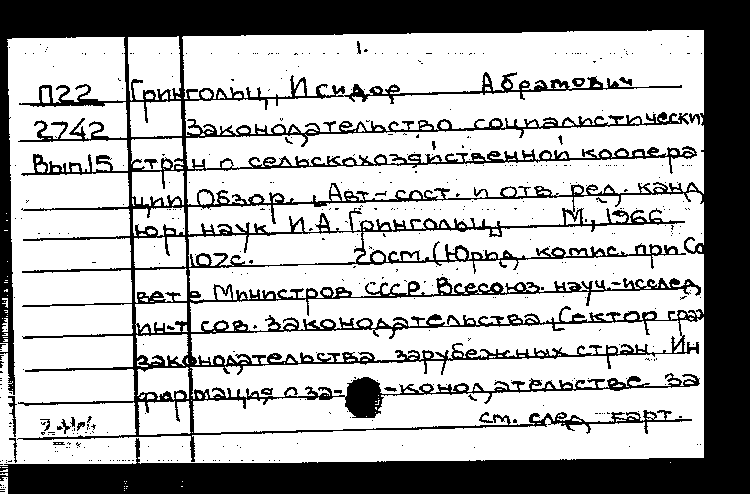 1.
П22 Грингольц, Исидор Абрамович
2742 Законодательство социалистических
Вып.15 стран о сельскохозяйственной коопера-
ции. Обзор. [Авт.-сост. и отв. ред. канд.
юр. наук И.А. Грингольц] М., 1966.
107с. 20см. (Юрид. комис. при Со
вете Министров СССР. Всесоюз. науч.-исслед.
ин-т сов. законодательства. [Сектор граж
законодательства зарубежных стран]. Ин
формация о за- -конодательстве за
см. след. карт.